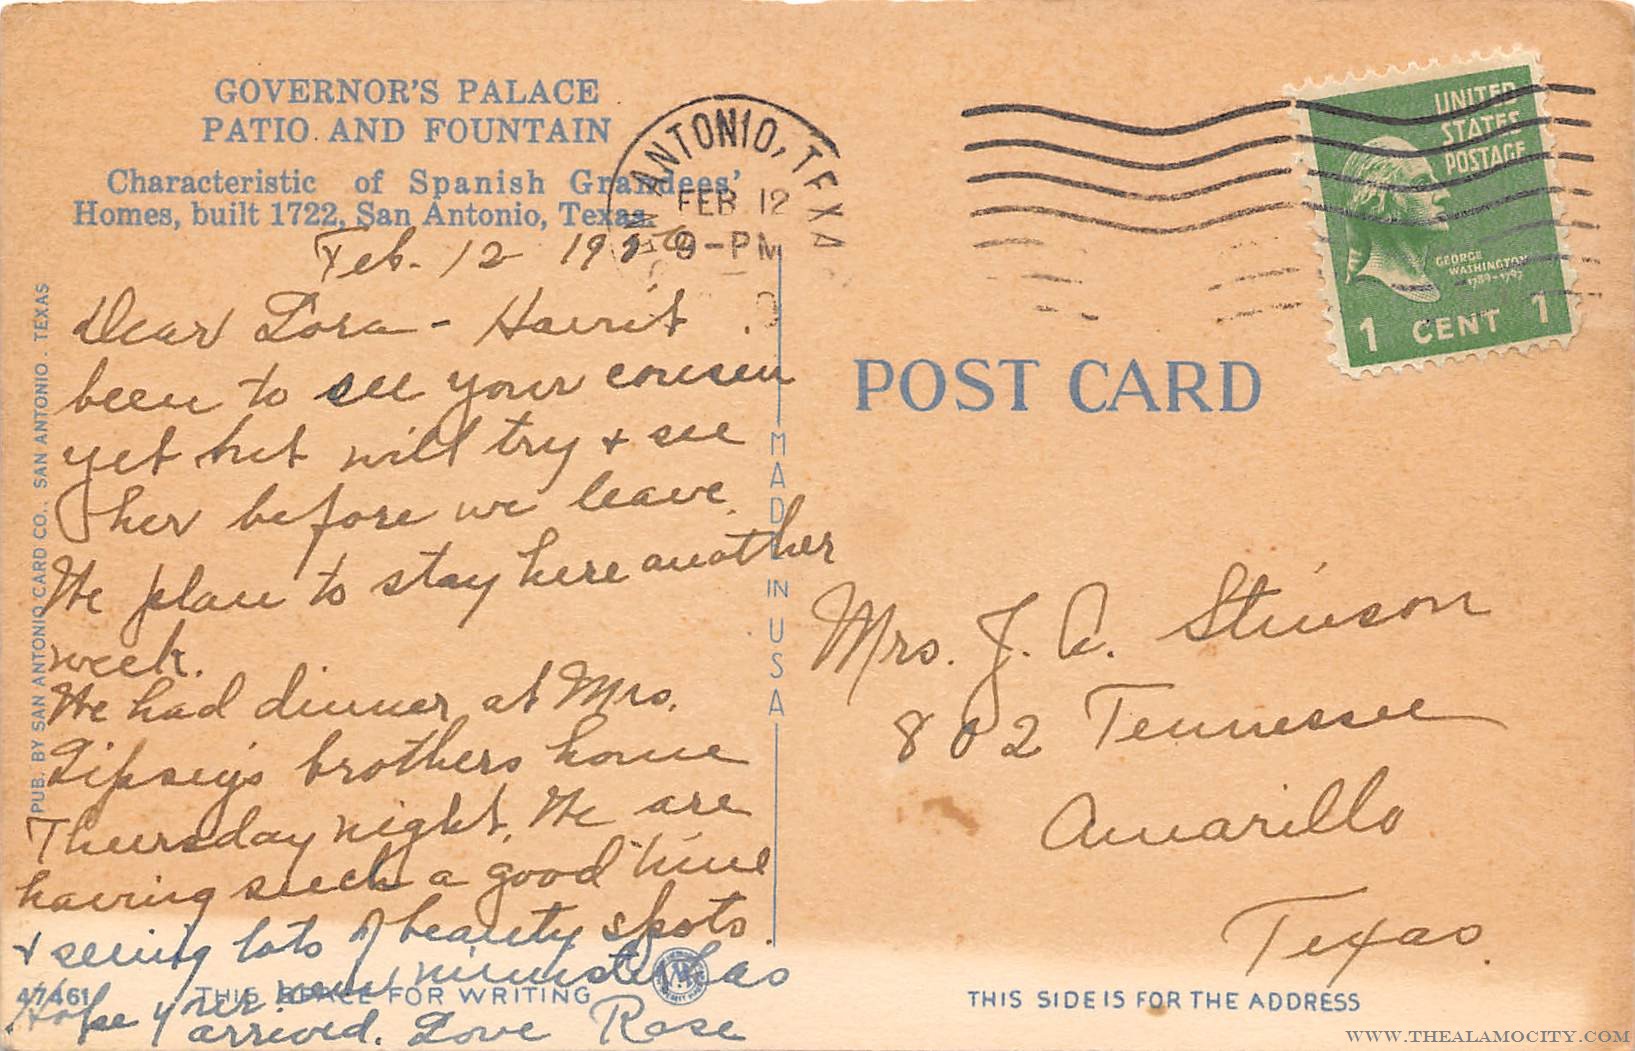 GOVERNOR'S PALACE
PATIO AND FOUNTAIN
Characteristic of Spanish Grandees'
Homes, built 1722, San Antonio, Texas.
Feb. 12 19
Dear Lora - Havn't
been to see your cousin
yet but will try + see
her before we leave.
We plan to stay here another
week.
We had dinner at Mrs.
Gipseys brothers home
Thursday night. We are
having such a good time
+ seeing lots of beauty spots.
Hope your new minister has
arrived. Love Rose
47461
THIS SPACE FOR WRITING
PUB. BY SAN ANTONIO CARD CO., SAN ANTONIO, TEXAS
MADE IN USA
ANTONIO, TEXA
FEB 12
9-PM
UNITED
STATES
POSTAGE
GEORGE
WASHINGTON
1789-1797
1 CENT 1
POST CARD
Mrs. J. A. Stinson
802 Tennessee
Amarillo
Texas.
THIS SIDE IS FOR THE ADDRESS
WWW.THEALAMOCITY.COM